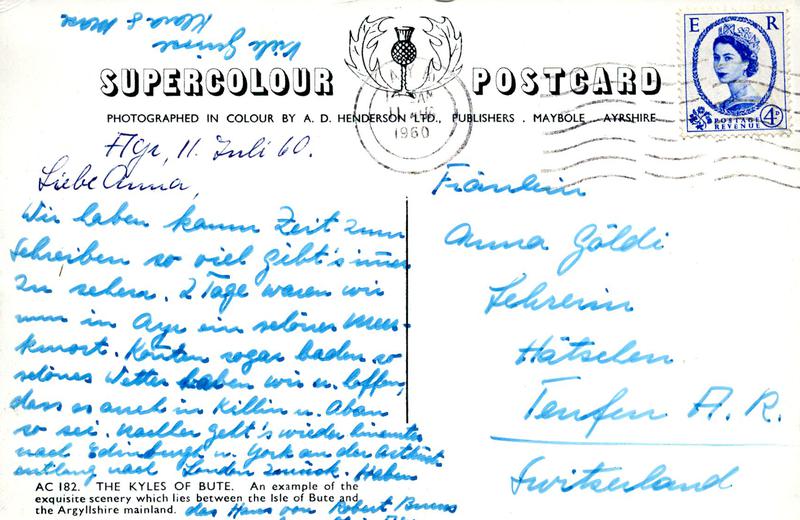 Viele Grüsse
Klara & Max
SUPERCOLOUR POSTCARD
PHOTOGRAPHED IN COLOUR BY A. D. HENDERSON LTD., PUBLISHERS . MAYBOLE . AYRSHIRE
E R
POSTAGE
REVENUE
4D
AM
11
1960
Ayr, 11. Juli 60.
Liebe Anna,
Wir haben kaum Zeit zum
schreiben so viel gibt's immer
zu sehen. 2 Tage waren wir
nun in Ayr ein schönes Meer-
kurort. Konnten sogar baden, so
schönes Wetter haben wir u. hoffen,
dass es auch in Killin u. Oban
so sei. Nachher geht's wieder hinunter
nach Edinburgh u. York an der Ostküste
entlang nach London zurück. Haben
das Haus von Robert Burns
Fräulein
Anna Göldi
Lehrerin
Hätschen
Teufen A. R.
Switzerland
AC 182. THE KYLES OF BUTE. An example of the
exquisite scenery which lies between the Isle of Bute and
the Argyllshire mainland.